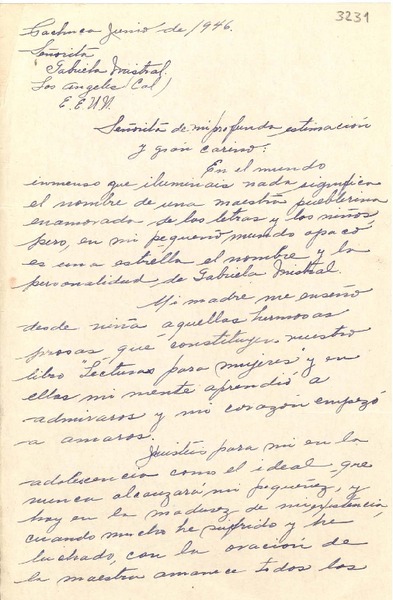 3231
Pachuca Junio de 1946.
Señorita
Gabriela Mistral.
Los Angeles (Cal)
E.E.U.U.
Señorita de mi profunda estimación
y gran cariño:
En el mundo
inmenso que iluminais nada significa
el nombre de una maestra pueblerina
enamorada de las letras y los niños
pero, en mi pequeño mundo opaco
es una estrella el nombre y la
personalidad de Gabriela Mistral.
Mi madre me enseñó
desde niña aquellas hermosas
prosas que constituyen vuestro
libro "Lecturas para mujeres" y en
ellas mi mente aprendió a
admiraros y mi corazón empezó
a amaros.
Fuisteis para mi en la
adolecencia como el ideal que
nunca alcanzará mi pequeñez, y
hoy en la madurez de mi existencia
cuando mucho he sufrido y he
luchado, con la oración de
la maestra amanece todos los